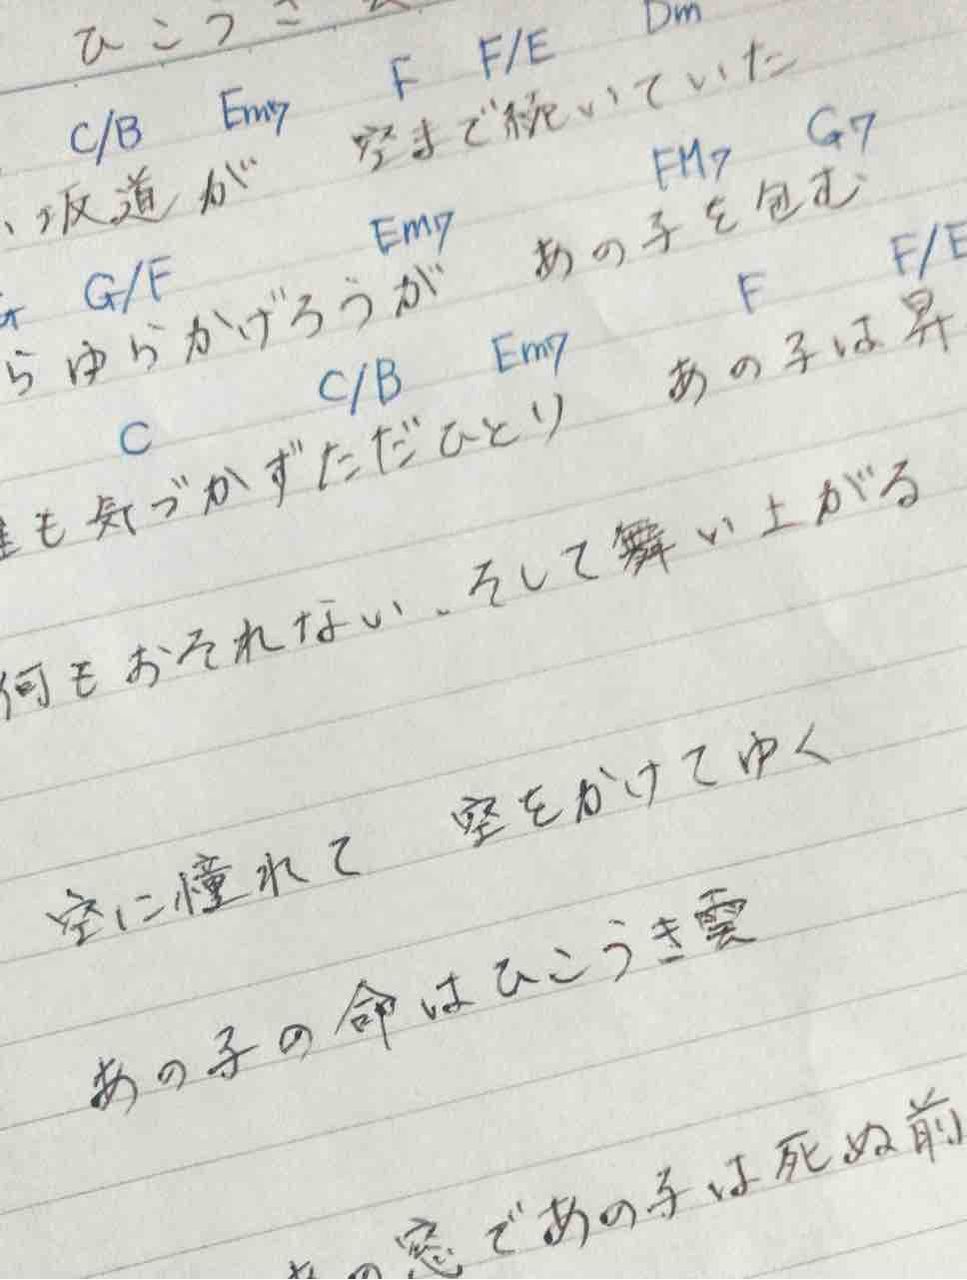 ひこうき
C/B Em7 F F/E Dm
い坂道が 空まで続いていた
G/F Em7 FM7 G7
らゆらかげろうが あの子を包む
C C/B Em7 F F/E
も気づかずただひとり あの子は昇
何もおそれない、そして舞い上がる
空に憧れて 空をかけてゆく
あの子の命はひこうき雲
の窓であの子は死ぬ前